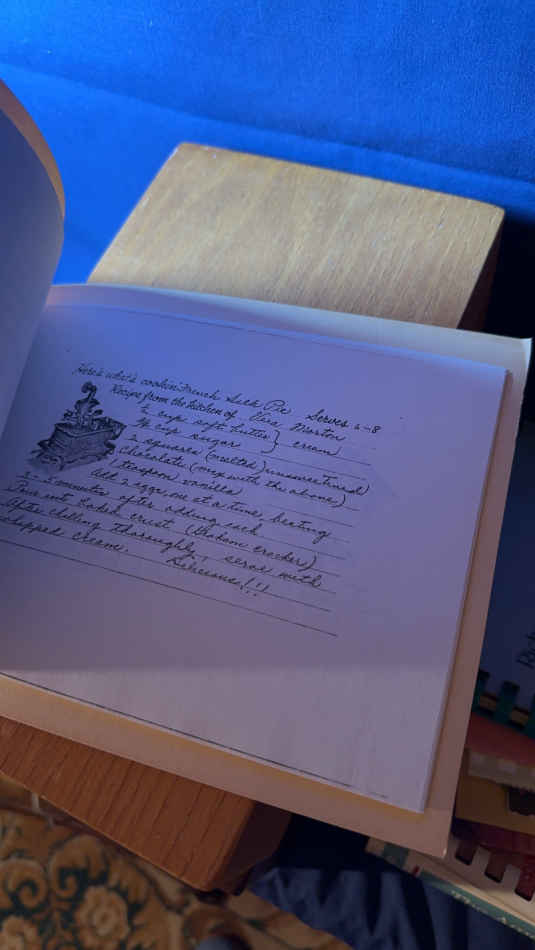 Here's what's cookin' French Silk Pie Serves 6-8
Recipe from the kitchen of Vera Morton
½ cup soft butter } cream
¾ cup sugar
2 squares (melted) unsweetened
Chocolate (mix with the above)
1 teaspoon vanilla
Add 2 eggs, one at a time, beating
5 minutes after adding each
Pour into baked crust (Graham cracker)
After chilling thoroughly, serve with
whipped cream. Delicious!!!